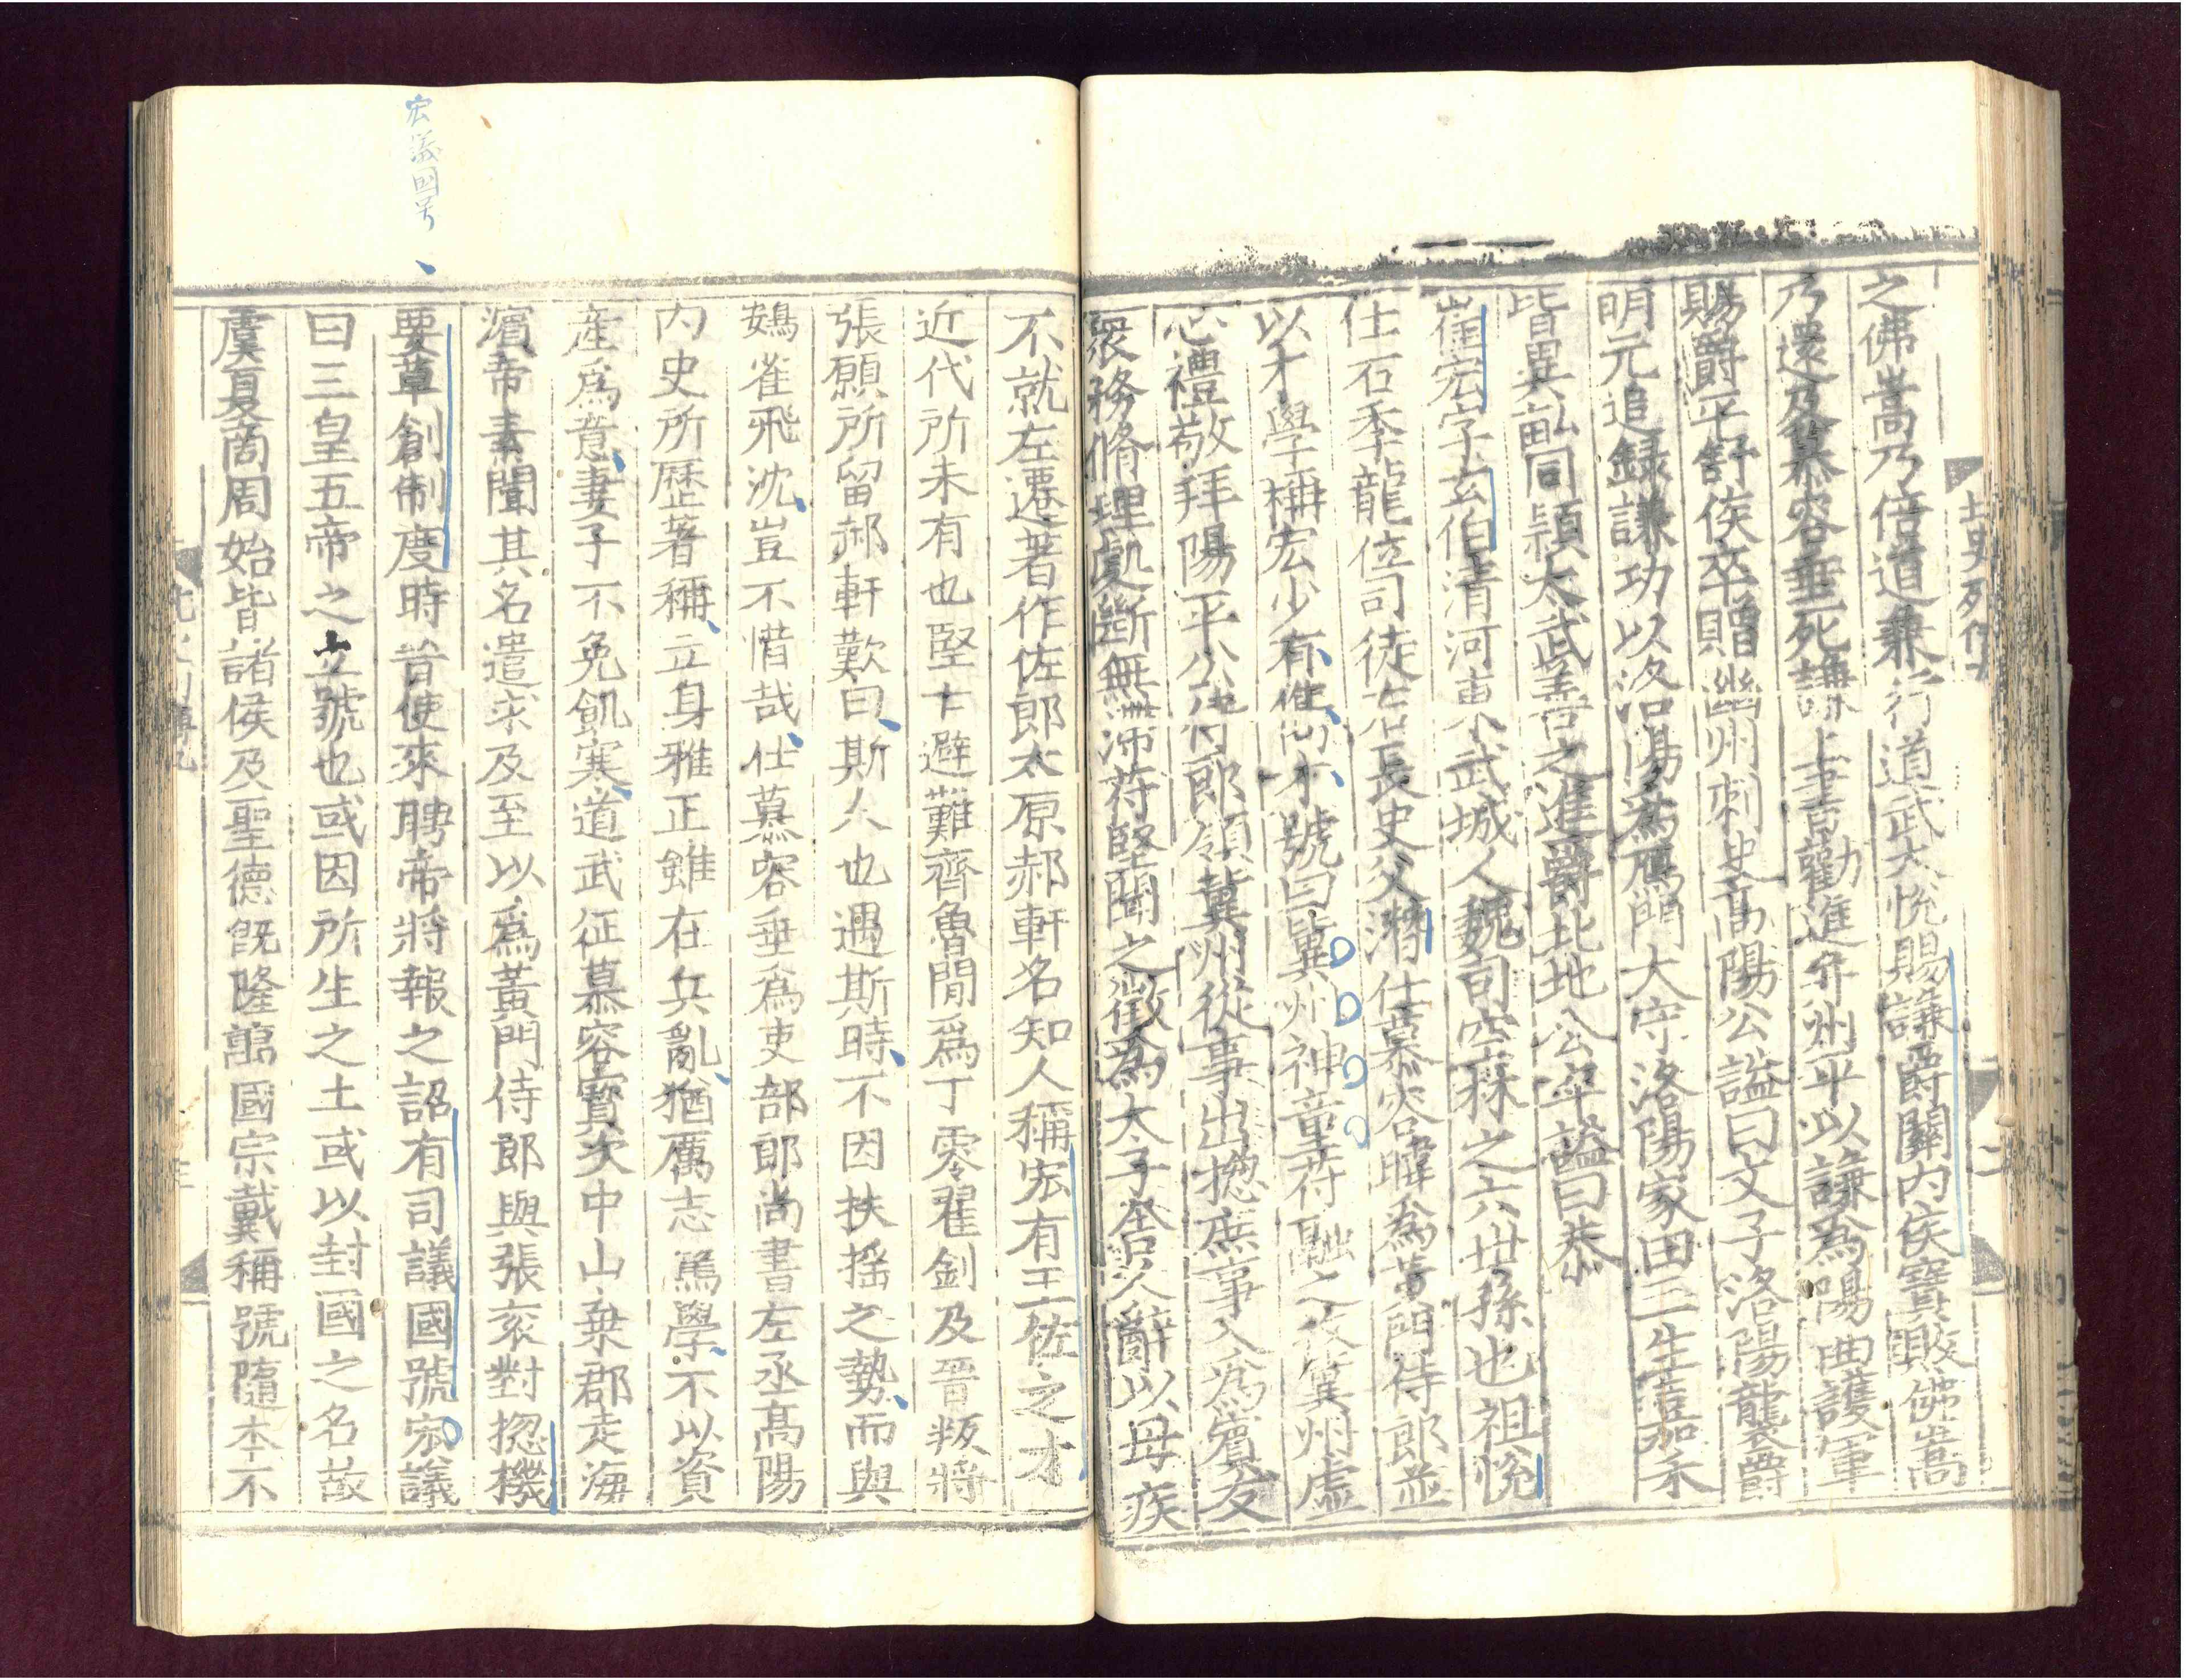 之佛嵩乃倍道兼行道武大悅賜謙爵關內侯寶敗佛嵩
乃還及慕容垂死謙上書勸進幷州平以謙爲陽曲護軍
賜爵平舒侯卒贈幽州刺史高陽公謚曰文子洛陽襲爵
明元追録謙功以洛陽爲鴈門太守洛陽家田三生嘉禾
皆異畝同頴太武善之進爵北地公卒謚曰恭
崔宏字玄伯清河東武城人魏司空林之六世孫也祖悅
仕石季龍位司徒右長史父潛仕慕容暐爲黃門侍郎並
以才學稱宏少有儁才號曰冀州神童苻融之牧冀州虛
心禮敬拜陽平公侍郎領冀州從事出揔庶事入爲賓友
衆務脩理處斷無滯苻堅聞之徵爲太子舍人辭以母疾
不就左遷著作佐郎太原郝軒名知人稱宏有王佐之才
近代所未有也堅亡避難齊魯閒爲丁零翟釗及晉叛將
張願所留郝軒歎曰斯人也遇斯時不因扶揺之勢而與
鷃雀飛沈豈不惜哉仕慕容垂爲吏部郎尚書左丞高陽
內史所歷著稱立身雅正雖在兵亂猶厲志篤學不以資
產爲意妻子不免飢寒道武征慕容寶次中山棄郡走海
濵帝素聞其名遣求及至以爲黃門侍郎與張袞對揔機
要草創制度時晉使來聘帝將報之詔有司議國號宏議
曰三皇五帝之立號也或因所生之土或以封國之名故
虞夏商周始皆諸侯及聖德旣隆萬國宗戴稱號隨本不
宏議国号